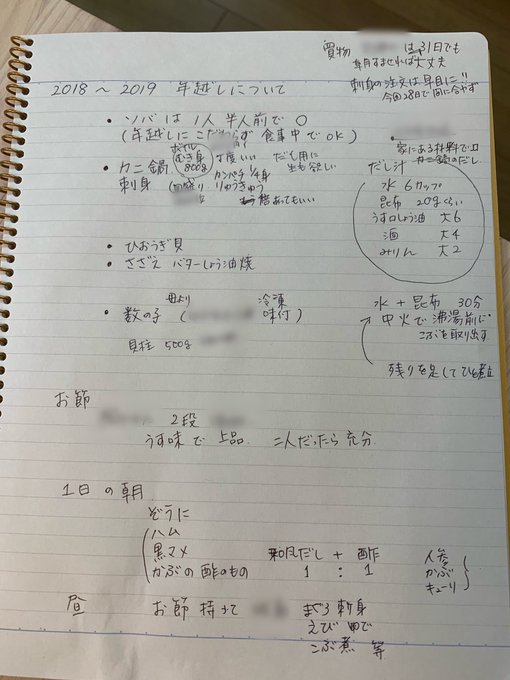 買物 は31日でも
早目すませれば大丈夫
刺身の注文は早目に!!
今回28日で間に合わず
2018～2019 年越しについて
・ソバは1人半人前で○
(年越しにこだわらず食事中でOK)
・カニ鍋 ボイルむき身 800g 丁度いい だし用に生も欲しい
刺身 カンパチ1/4身
りゅうきゅう
倍あってもいい
・家にある材料で
カニ鍋のだし
だし汁
水 6カップ
昆布 20gくらい
うす口しょう油 大6
酒 大4
みりん 大2
・ひおうぎ貝
・さざえ バターしょう油焼
・数の子 ( 冷凍 味付)
貝柱 500g
水 + 昆布 30分
→中火で沸湯前に
こぶを取り出す
残りを足してひと煮立
お節
2段
うす味で上品. 二人だったら充分.
1日の朝
ぞうに
ハム
黒マメ
かぶの酢のもの
和風だし + 酢
1 : 1
人参
かぶ
キューリ
昼 お節持って まぐろ刺身
えびゆで
こぶ煮 等